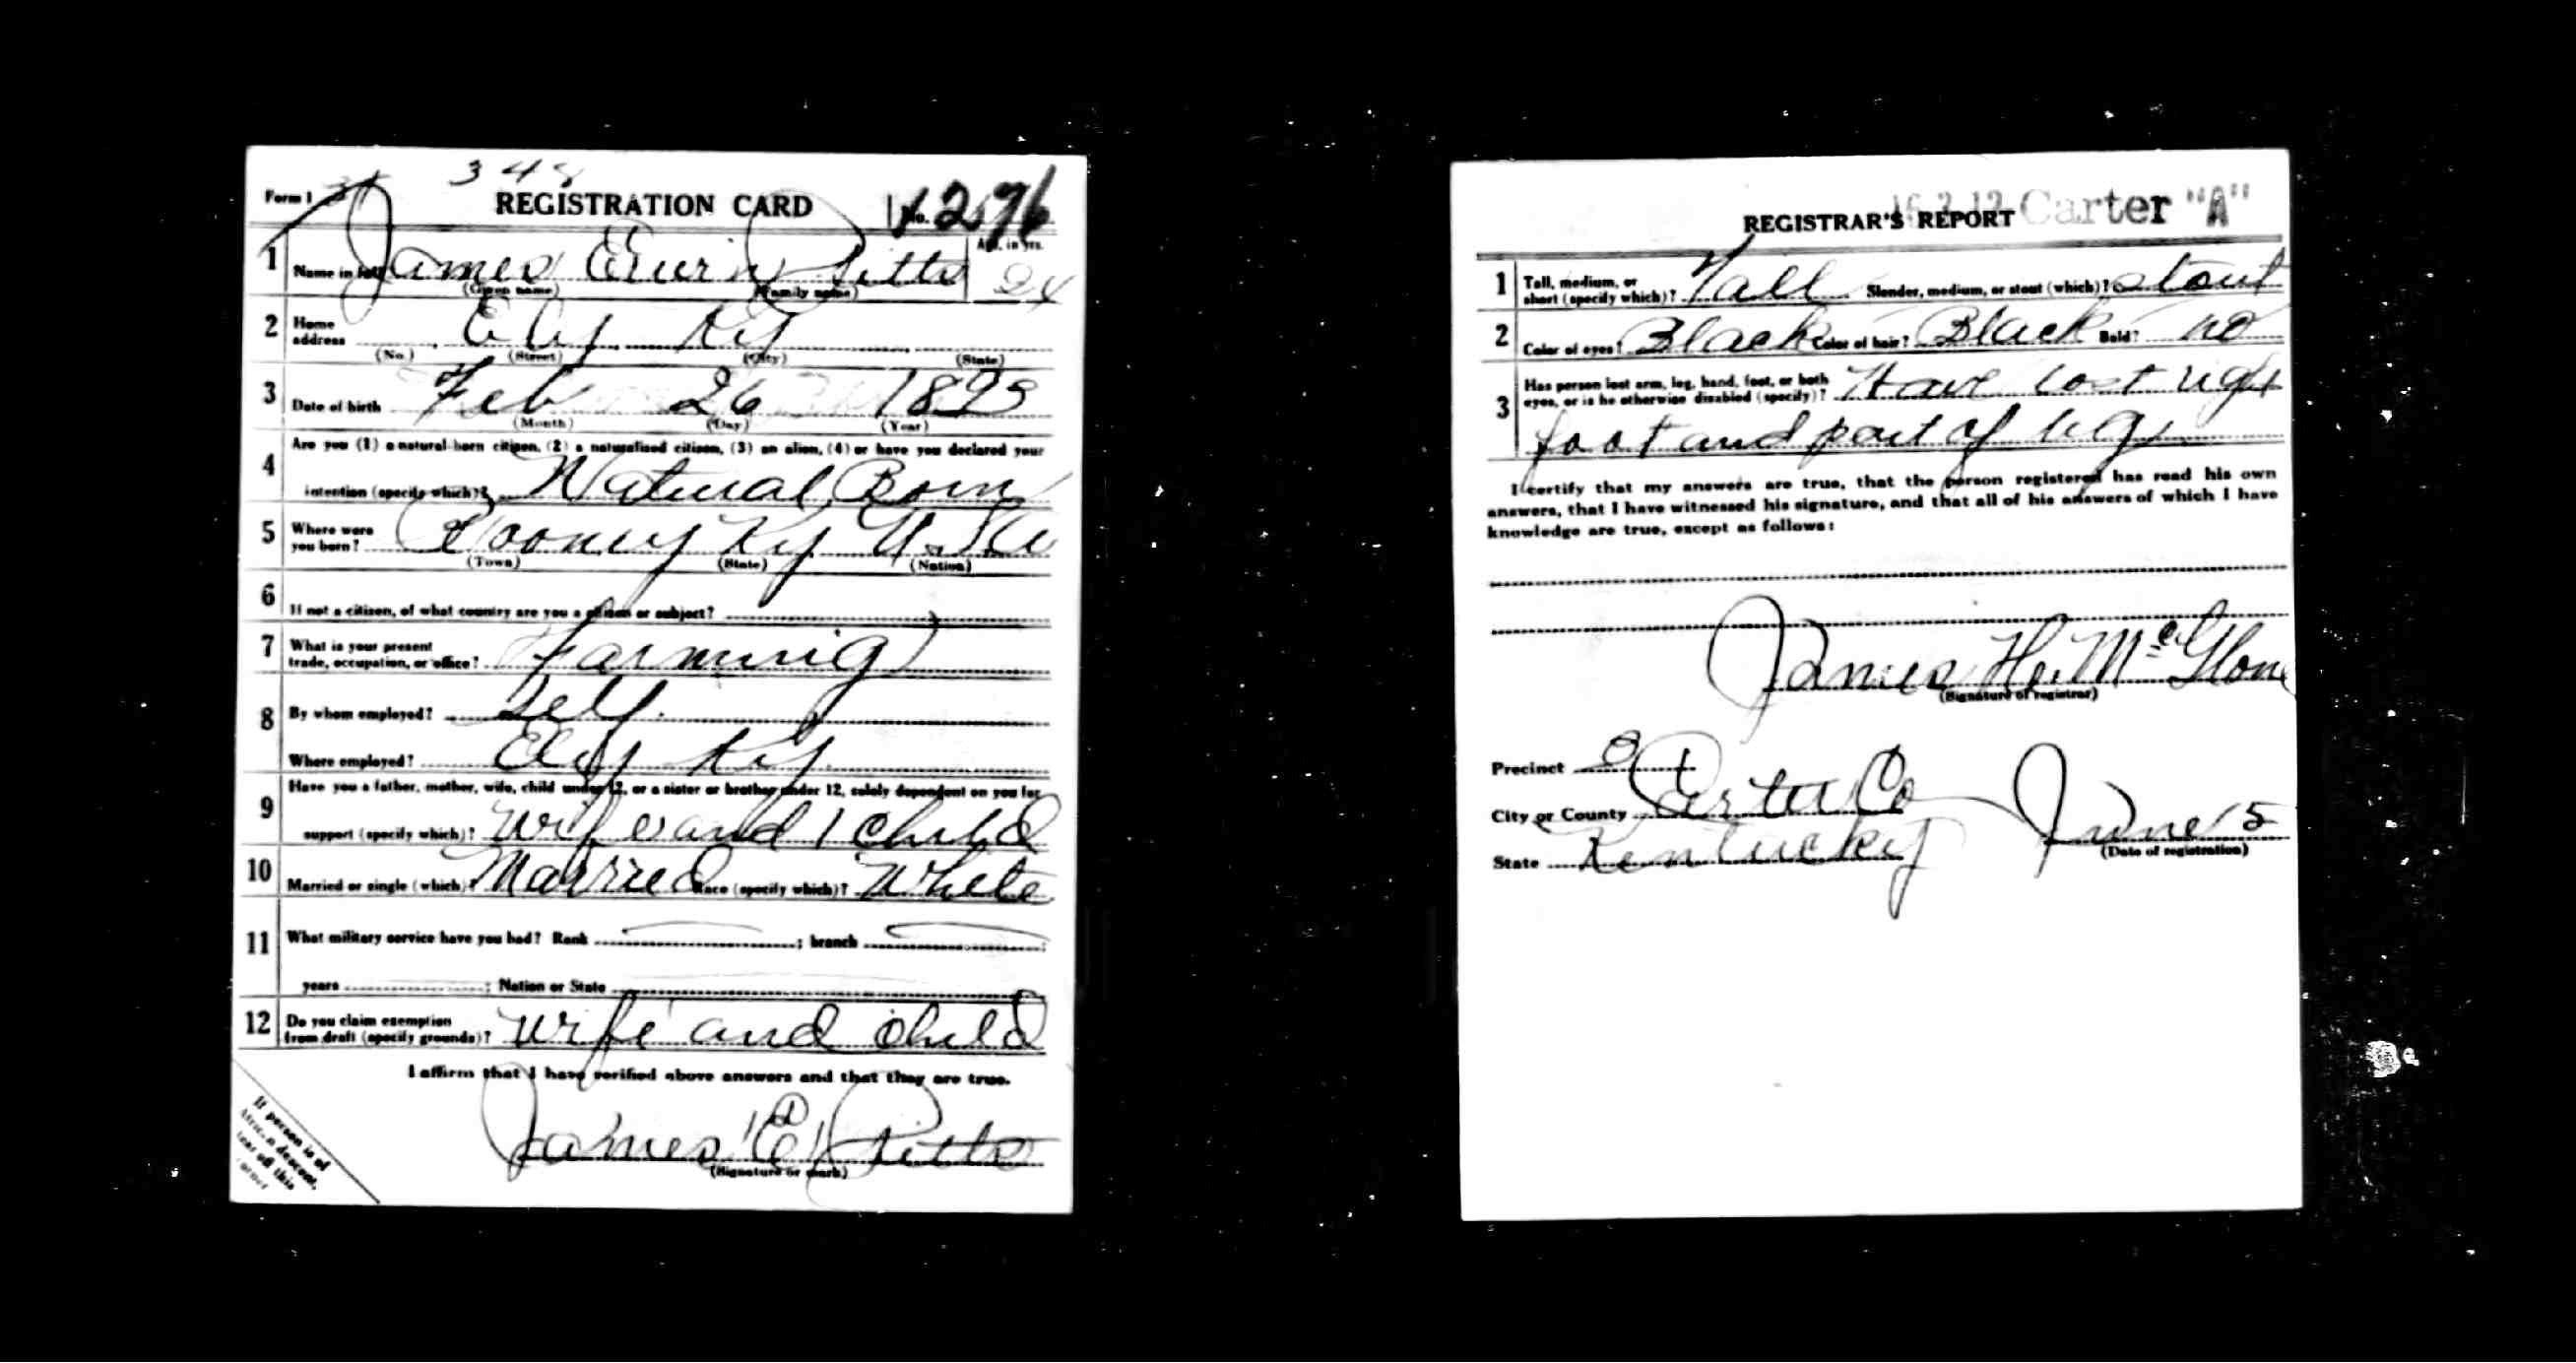 348
Form 1 REGISTRATION CARD No. 296
1 Name in full James Ervin Pitts Age, in yrs. 24
(Given name) (Family name)
2 Home address Ky
(No.) (Street) (City) (State)
3 Date of birth Feb 26 1893
(Month) (Day) (Year)
Are you (1) a natural-born citizen, (2) a naturalized citizen, (3) an alien, (4) or have you declared your
4 intention (specify which)? Natural Born
5 Where were you born? Ky U.S.A
(Town) (State) (Nation)
6 If not a citizen, of what country are you a citizen or subject?
7 What is your present trade, occupation, or office? farming
8 By whom employed? Self
Where employed? Ky
Have you a father, mother, wife, child under 12, or a sister or brother under 12, solely dependent on you for
9 support (specify which)? Wife and 1 child
10 Married or single (which)? Married Race (specify which)? White
11 What military service have you had? Rank ; branch ;
years ; Nation or State
12 Do you claim exemption from draft (specify grounds)? Wife and child
I affirm that I have verified above answers and that they are true.
James E Pitts
(Signature or mark)
If person is of
descent,
tear off this
corner
Carter "A"
REGISTRAR'S REPORT
1 Tall, medium, or short (specify which)? Tall Slender, medium, or stout (which)? stout
2 Color of eyes? Black Color of hair? Black Bald? no
3 Has person lost arm, leg, hand, foot, or both eyes, or is he otherwise disabled (specify)? Have lost right
foot and part of leg
I certify that my answers are true, that the person registered has read his own
answers, that I have witnessed his signature, and that all of his answers of which I have
knowledge are true, except as follows:
James H. McGlone
(Signature of registrar)
Precinct 8
City or County Carter Co June 5
State Kentucky (Date of registration)